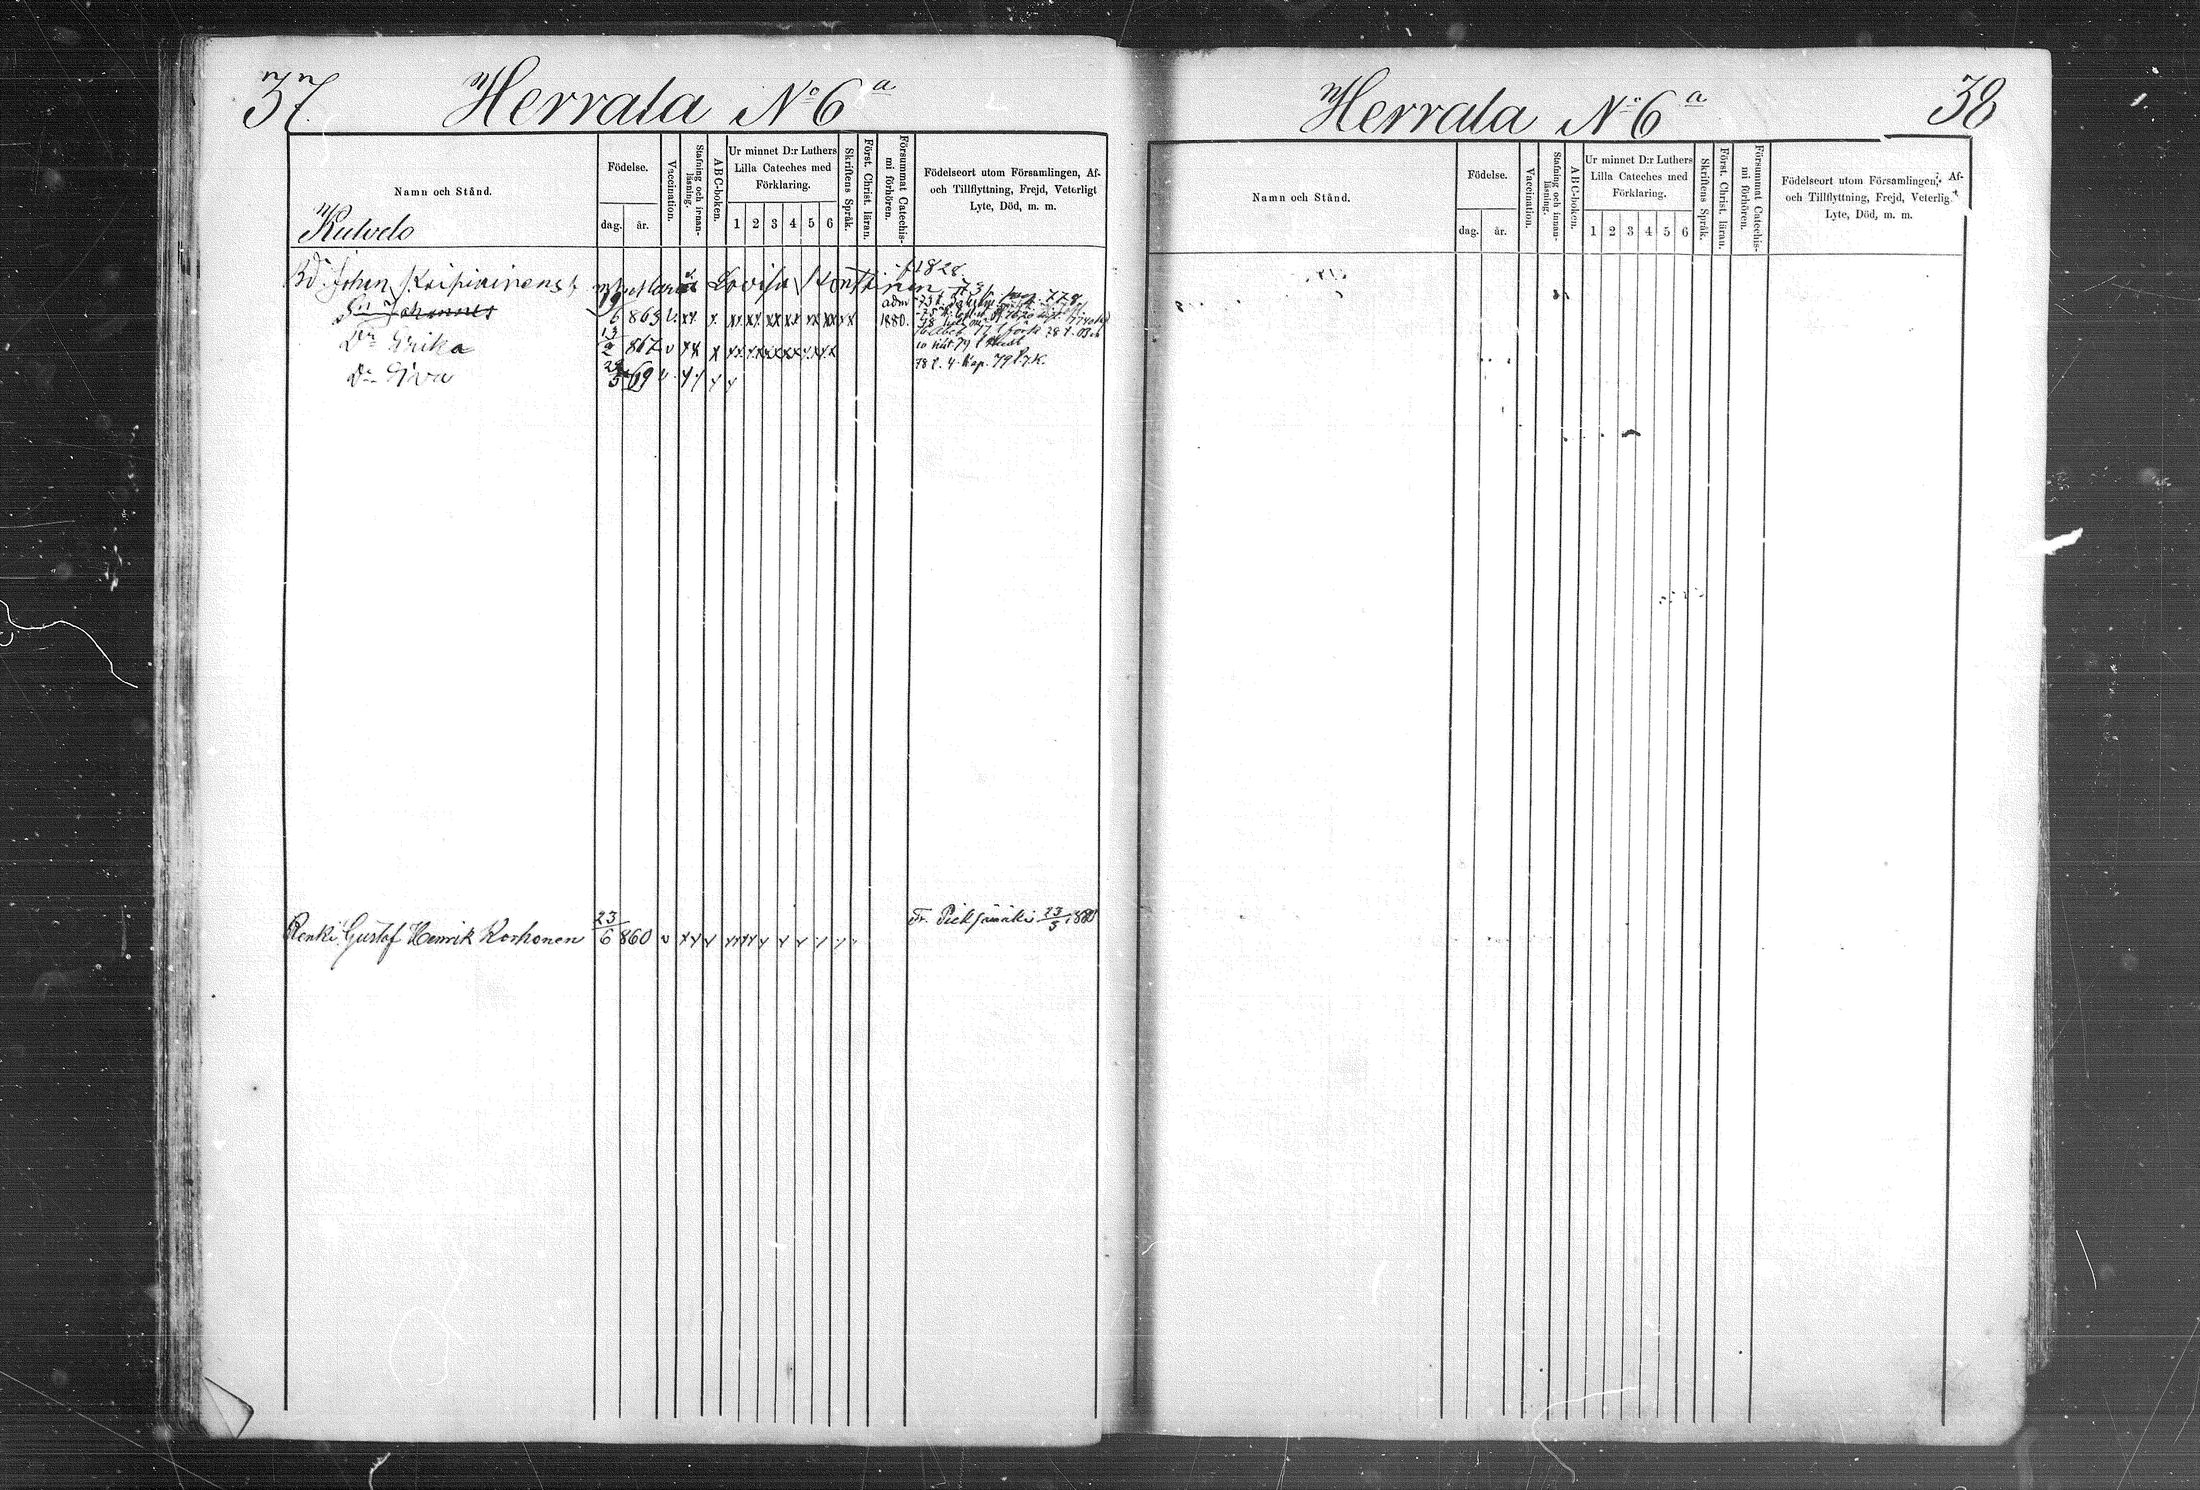 37.
Herrala No 6 a
Namn och Stånd.
Födelse.
dag.
år.
Vaccination.
Stafning och innan-
läsning.
ABC-boken.
Ur minnet D:r Luthers
Lilla Cateches med
Förklaring.
1 2 3 4 5 6
Skriftens Språk.
Först. Christ. läran.
Försummat Catechis-
mi förhören.
Födelseort utom Församlingen, Af-
och Tillflyttning, Frejd, Veterligt
Lyte, Död, m. m.
Kulvelo
Johan Lovisa f 1828.
Johannes 19/6 863 v. adm 1880.
Dr Erika 13/2 867 v
Dr Eva 69 v
78 l. 4. Kap. 79
Renki Gustaf Henrik Korhonen 23/6 860 v Fr. Pieksämäki 23/3
Herrala No 6 a
38
Namn och Stånd.
Födelse.
dag.
år.
Vaccination.
Stafning och innan-
läsning.
ABC-boken.
Ur minnet D:r Luthers
Lilla Cateches med
Förklaring.
1 2 3 4 5 6
Skriftens Språk.
Först. Christ. läran.
Försummat Catechis-
mi förhören.
Födelseort utom Församlingen, Af-
och Tillflyttning, Frejd, Veterlig
Lyte, Död, m. m.